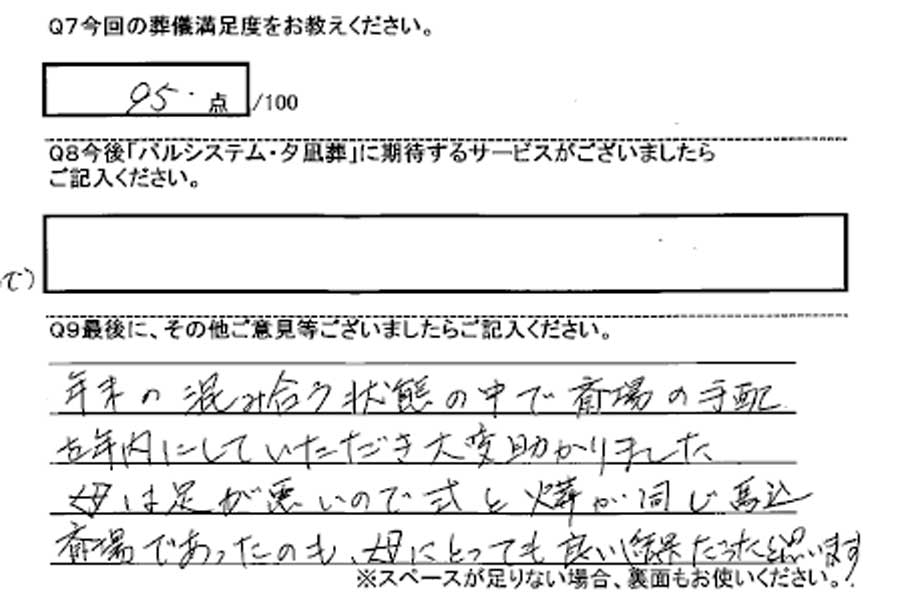 Q7今回の葬儀満足度をお教えください。
95. 点 /100
Q8今後「パルシステム・夕凪葬」に期待するサービスがございましたら
ご記入ください。
で)
Q9最後に、その他ご意見等ございましたらご記入ください。
年末の混み合う状態の中で斎場の手配
を年内にしていただき大変助かりました
母は足が悪いので式と火葬が同じ馬込
斎場であったのも、母にとっても良い結果だったと思います
※スペースが足りない場合、裏面もお使いください。